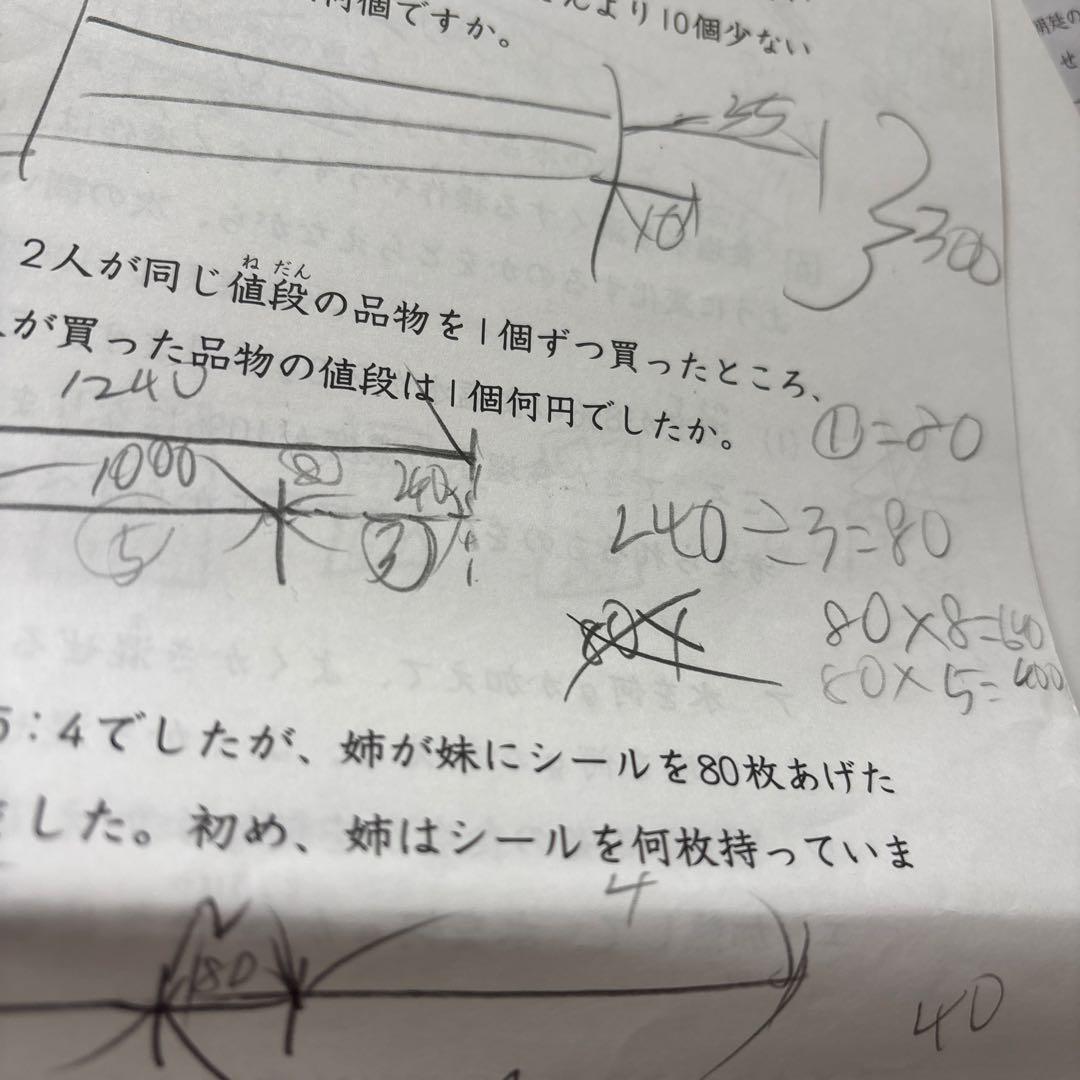 より10個少ない
何個ですか。
35
10
300
2人が同じ値段の品物を1個ずつ買ったところ、
ねだん
が買った品物の値段は1個何円でしたか。
1240
①=80
1000
⑧
240
⑤
③
240÷3=80
80×8=640
80×5=400
5:4でしたが、姉が妹にシールを80枚あげた
ました。初め、姉はシールを何枚持っていま
4
180
40